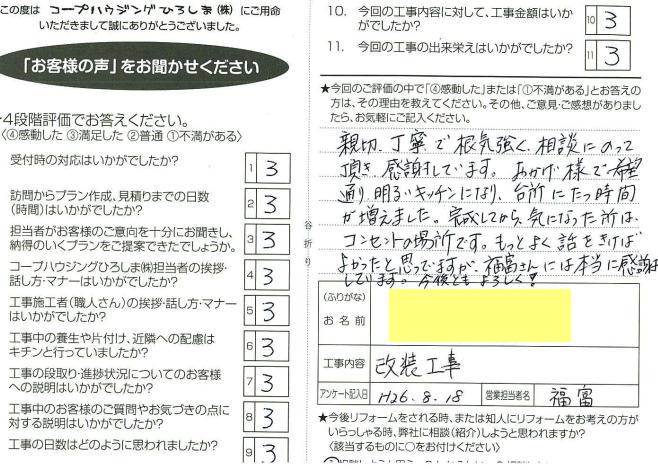 この度は コープハウジングひろしま(株) にご用命
いただきまして誠にありがとうございました。
「お客様の声」をお聞かせください
4段階評価でお答えください。
〈④感動した ③満足した ②普通 ①不満がある〉
受付時の対応はいかがでしたか?
1 3
訪問からプラン作成、見積りまでの日数
(時間)はいかがでしたか?
2 3
担当者がお客様のご意向を十分にお聞きし、
納得のいくプランをご提案できたでしょうか。
3 3
コープハウジングひろしま㈱担当者の挨拶・
話し方・マナーはいかがでしたか?
4 3
工事施工者(職人さん)の挨拶・話し方・マナー
はいかがでしたか?
5 3
工事中の養生や片付け、近隣への配慮は
キチンと行っていましたか?
6 3
工事の段取り・進捗状況についてのお客様
への説明はいかがでしたか?
7 3
工事中のお客様のご質問やお気づきの点に
対する説明はいかがでしたか?
8 3
工事の日数はどのように思われましたか?
9 3
谷折り
10. 今回の工事内容に対して、工事金額はいか
がでしたか?
10 3
11. 今回の工事の出来栄えはいかがでしたか?
11 3
★今回のご評価の中で「④感動した」または「①不満がある」とお答えの
方は、その理由を教えてください。その他、ご意見・ご感想がありまし
たら、お気軽にご記入ください。
親切、丁寧で根気強く、相談にのって
頂き、感謝しています。おかげ様で希望
通り、明るいキッチンになり、台所にたつ時間
が増えました。完成してから、気になった所は、
コンセントの場所です。もっとよく話をきけば
よかったと思ってますが、福富さんには本当に感謝
しています。今後ともよろしく!
(ふりがな)
お名前
工事内容 改装工事
アンケート記入日 H26.8.18 営業担当者名 福富
★今後リフォームをされる時、または知人にリフォームをお考えの方が
いらっしゃる時、弊社に相談(紹介)しようと思われますか?
〈該当するものに○をお付けください〉